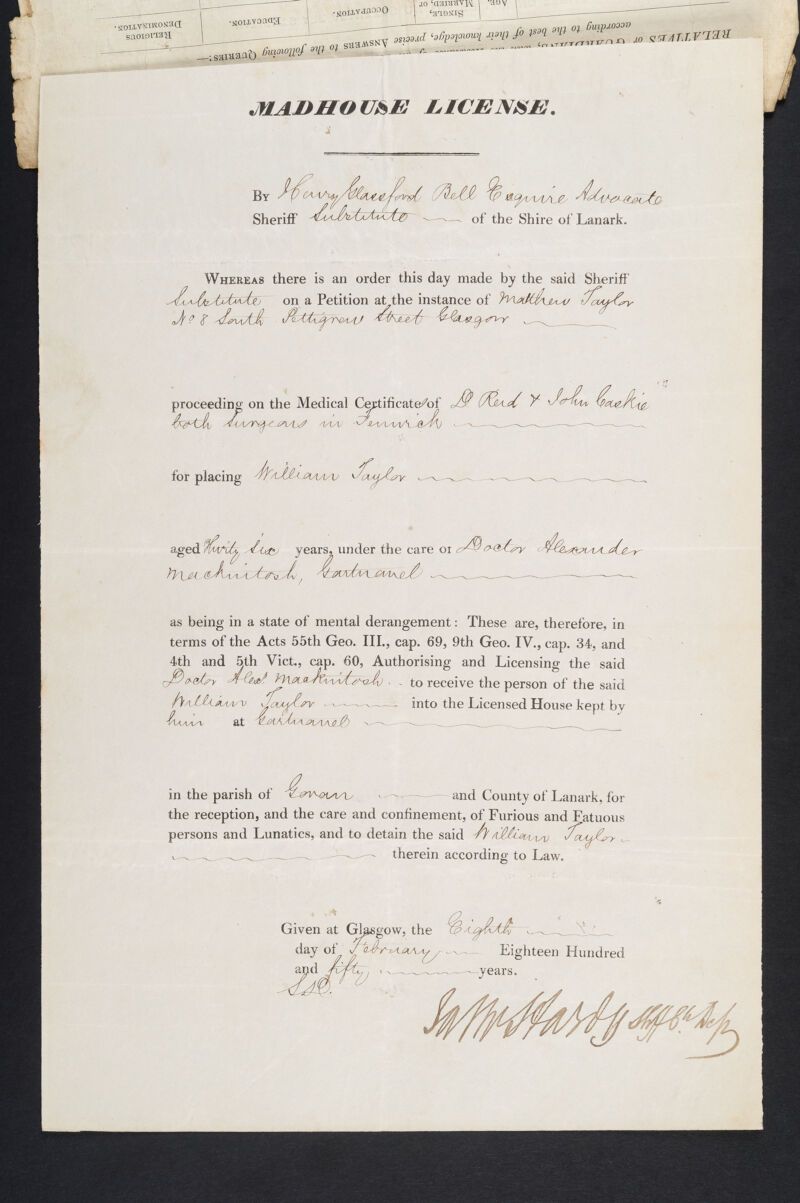 SINGLE,
MARRIED, or
AGE.
OCCUPATION.
EDUCATION.
RELIGIOUS
DENOMINATION.
RELATIVES or GUARDIANS,
according to the best of their knowledge, precise ANSWERS to the following QUERIES:—
MADHOUSE LICENSE.
By Henry Glassford Bell Esquire Advocate
Sheriff Substitute of the Shire of Lanark.
Whereas there is an order this day made by the said Sheriff
Substitute on a Petition at the instance of Matthew Taylor
No 8 South Pettigrew Street Glasgow
proceeding on the Medical Certificates of D Reid & John Caskie
both Surgeons in Fenwick
for placing William Taylor
aged thirty six years, under the care of Doctor Alexander
Mackintosh, Gartnavel
as being in a state of mental derangement: These are, therefore, in
terms of the Acts 55th Geo. III., cap. 69, 9th Geo. IV., cap. 34, and
4th and 5th Vict., cap. 60, Authorising and Licensing the said
Doctor Alexr Mackintosh to receive the person of the said
William Taylor into the Licensed House kept by
him at Gartnavel
in the parish of Govan and County of Lanark, for
the reception, and the care and confinement, of Furious and Fatuous
persons and Lunatics, and to detain the said William Taylor
therein according to Law.
Given at Glasgow, the Eighth
day of February Eighteen Hundred
and fifty years.
Hardy